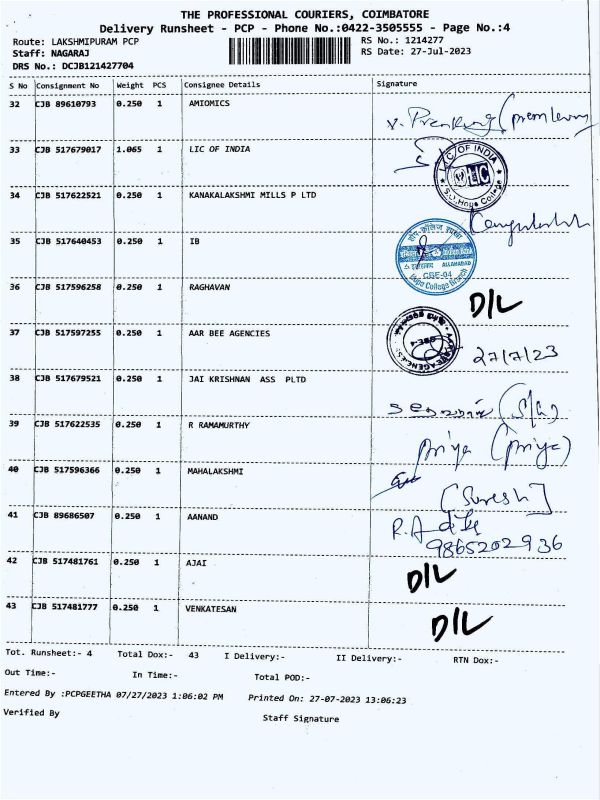 THE PROFESSIONAL COURIERS, COIMBATORE
Delivery Runsheet - PCP - Phone No.:0422-3505555 - Page No.:4
Route: LAKSHMIPURAM PCP RS No.: 1214277
Staff: NAGARAJ RS Date: 27-Jul-2023
DRS No.: DCJB121427704
S No Consignment No Weight PCS Consignee Details Signature
32 CJB 89610793 0.250 1 AMIOMICS
33 CJB 517679017 1.065 1 LIC OF INDIA LIC OF INDIA LIC
34 CJB 517622521 0.250 1 KANAKALAKSHMI MILLS P LTD
35 CJB 517640453 0.250 1 IB ALLAHABAD CBE-04
36 CJB 517596258 0.250 1 RAGHAVAN D/L
37 CJB 517597255 0.250 1 AAR BEE AGENCIES 27/7/23
38 CJB 517679521 0.250 1 JAI KRISHNAN ASS PLTD
39 CJB 517622535 0.250 1 R RAMAMURTHY Priya (priya)
40 CJB 517596366 0.250 1 MAHALAKSHMI [Suresh]
41 CJB 89686507 0.250 1 AANAND 9865202936
42 CJB 517481761 0.250 1 AJAI D/L
43 CJB 517481777 0.250 1 VENKATESAN D/L
Tot. Runsheet:- 4 Total Dox:- 43 I Delivery:- II Delivery:- RTN Dox:-
Out Time:- In Time:- Total POD:-
Entered By :PCPGEETHA 07/27/2023 1:06:02 PM Printed On: 27-07-2023 13:06:23
Verified By Staff Signature